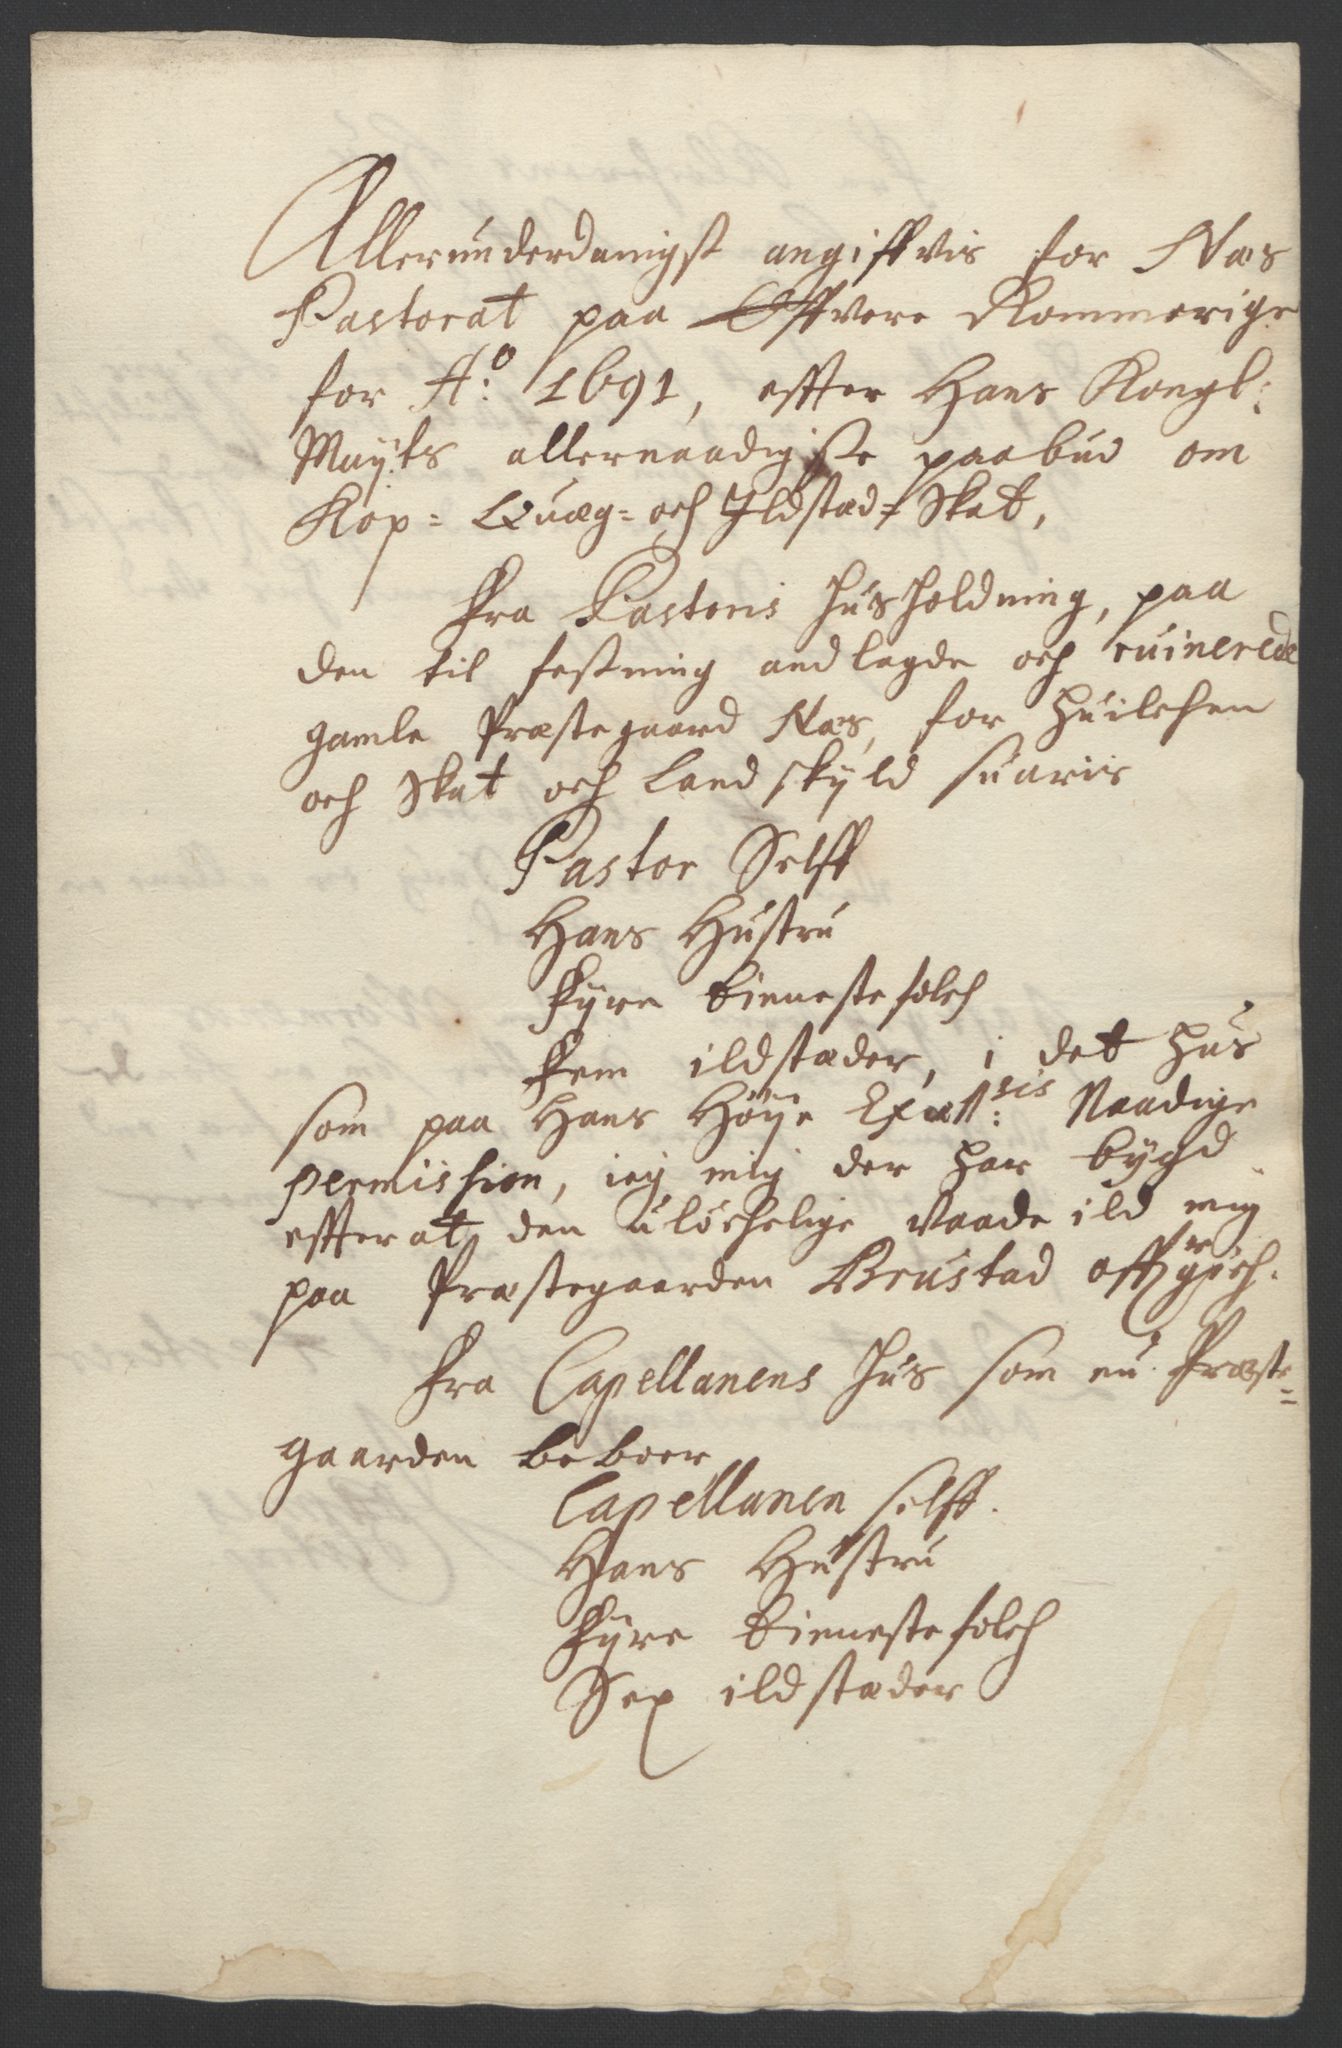 Allerunderdanigst angiffvis for Næs
Pastorat paa Offvere Rommerige
for Aº: 1691, effter Hans Kongl:
Mayts allernaadigste paabud om
Kop= Quæg= och Ildstæd= Skat,
Fra Pastoris Husholdning, paa
den til festning andlagde och ruinerede
gamle Præstegaard Næs, for huilchen
och Skat och Landskyld suaris
Pastor Selff
Hans Hustru
Fyre tienestefolch
Fem ildstæder, i det Hus
som paa Hans Höye Naadige
permission, ieg mig der har bygd
effterat den ulöchelige Vaade ild mig
paa Præstegaarden Brustad
Fra Capellanens Hus som nu Præste=
gaarden beboer
Capellanen selff.
Hans Hustru
Fyre tienestefolch
Sex ildstæder